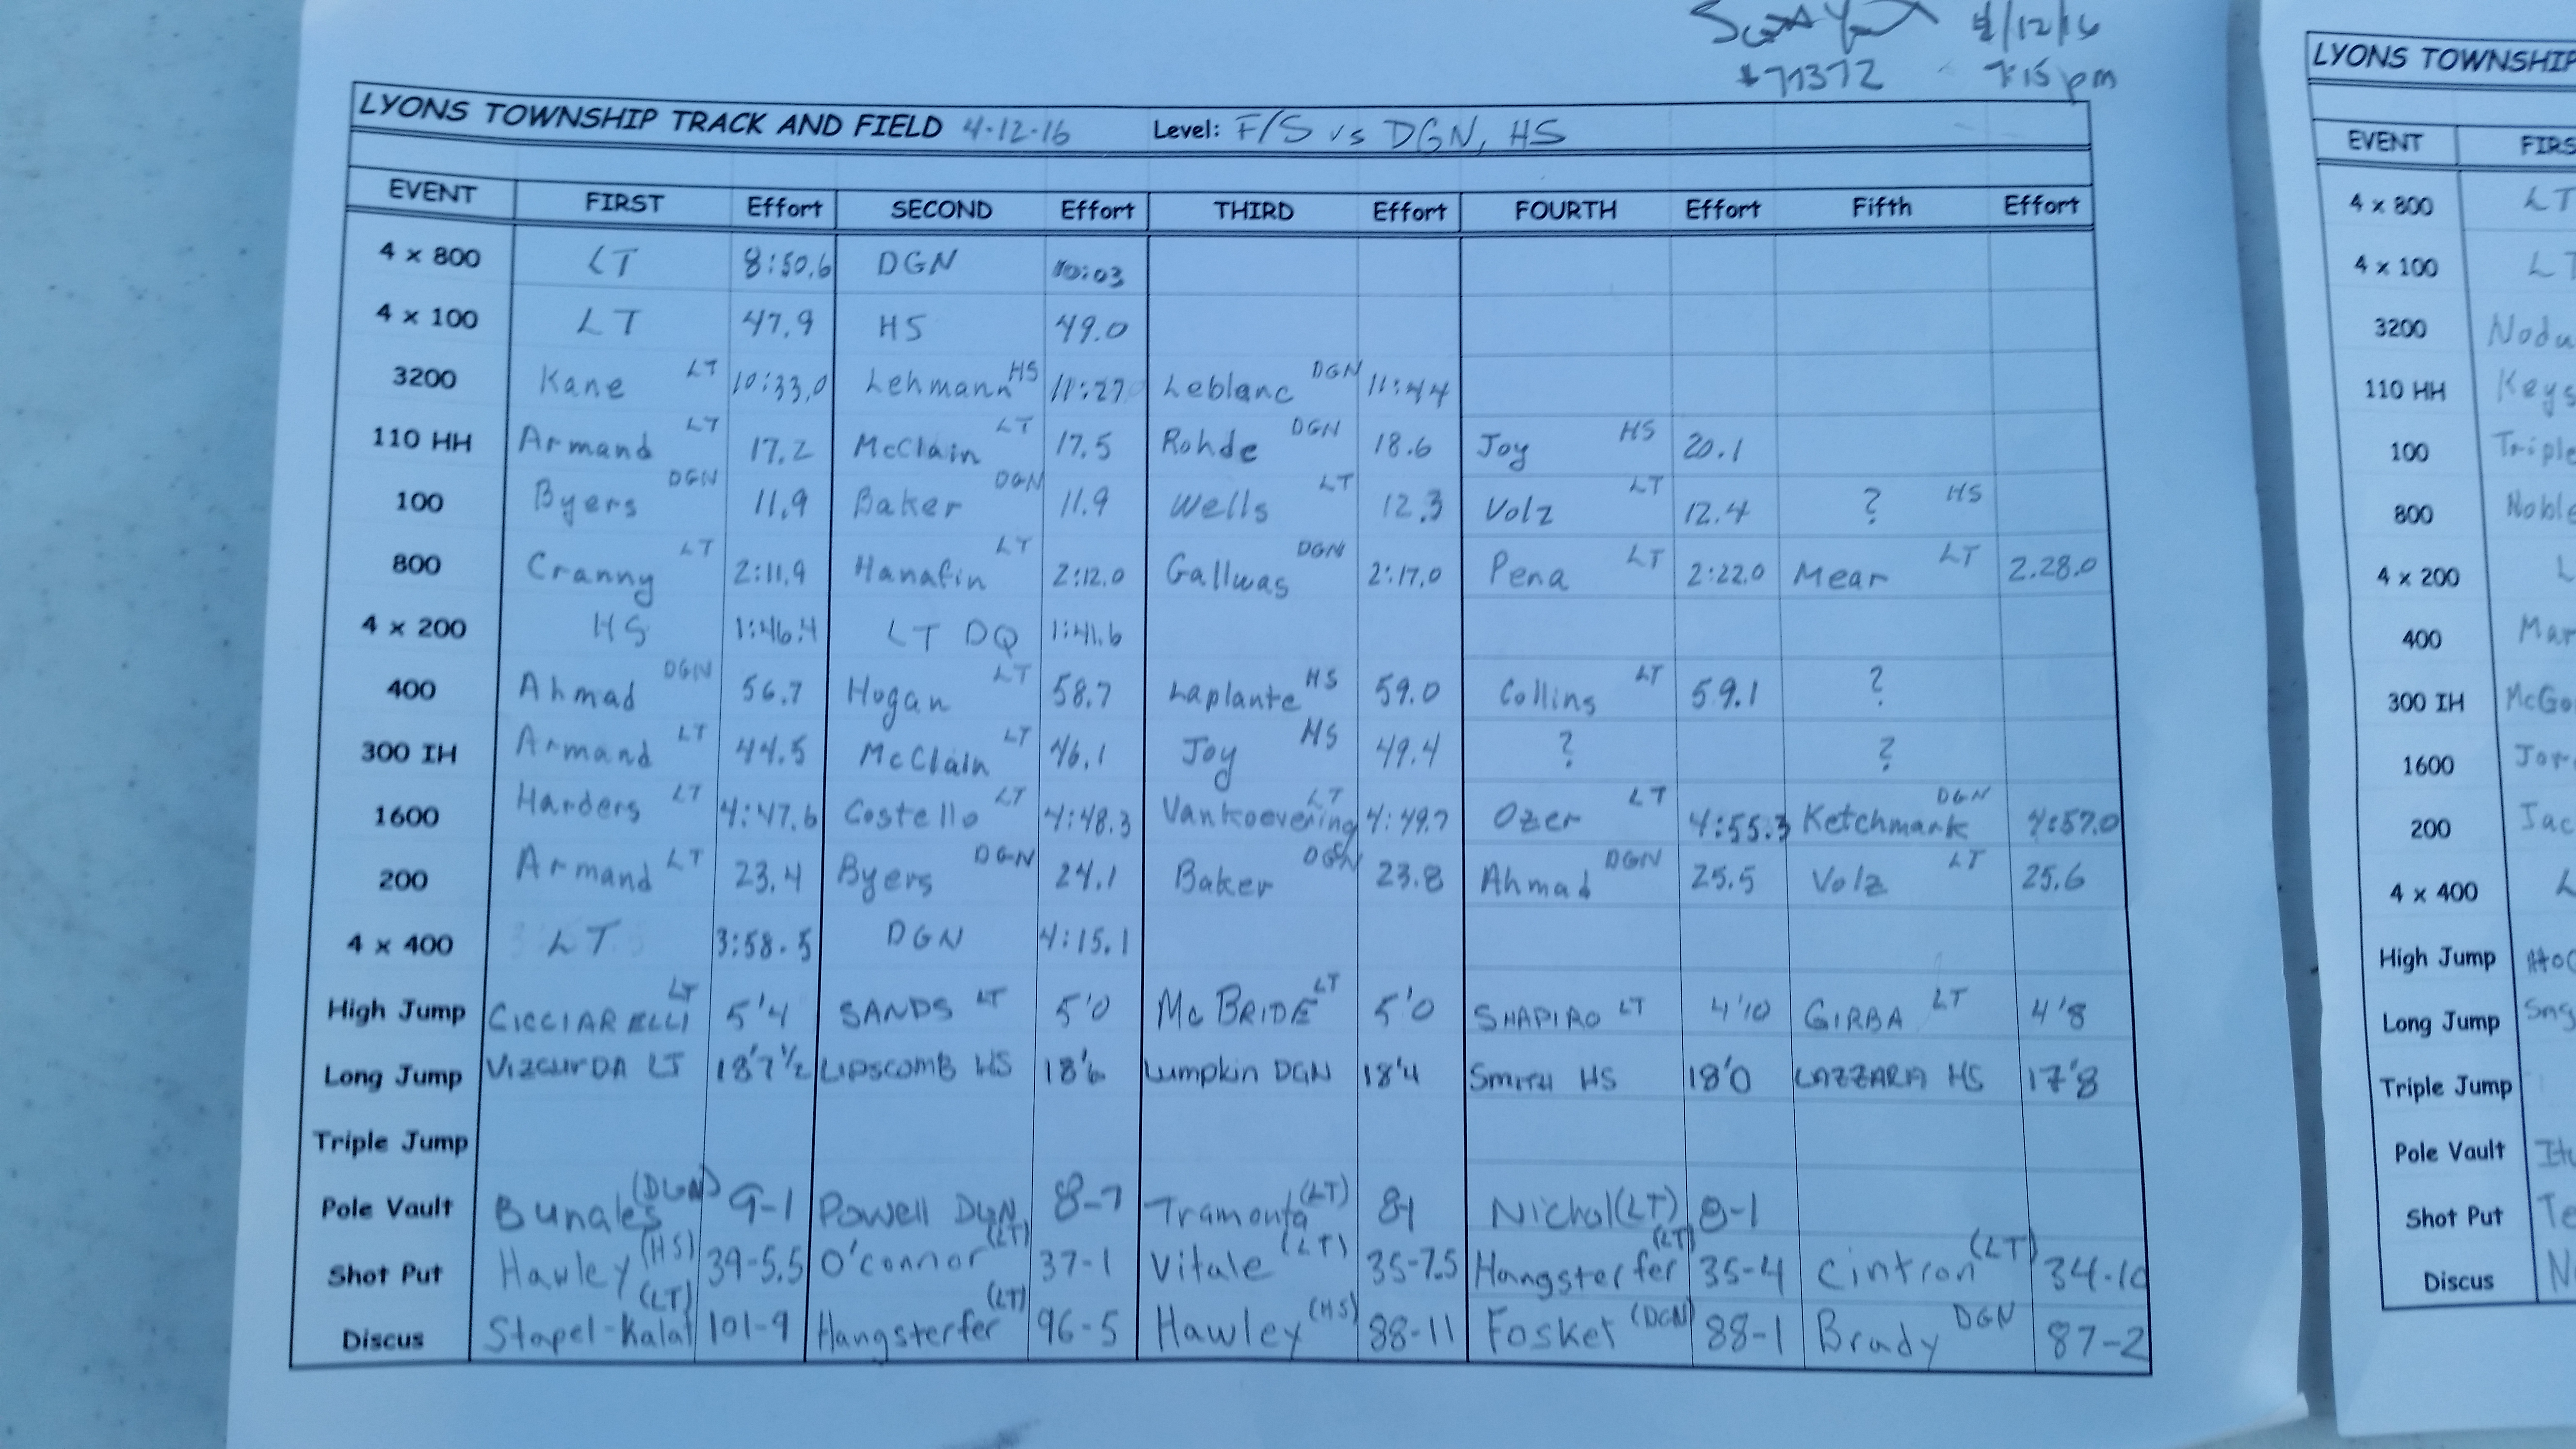 4/12/16
#71372 7:15 pm
LYONS TOWNSHIP TRACK AND FIELD 4-12-16 Level: F/S vs DGN, HS
EVENT FIRST Effort SECOND Effort THIRD Effort FOURTH Effort Fifth Effort
4 x 800 LT 8:50.6 DGN 10:03
4 x 100 LT 47.9 HS 49.0
3200 Kane LT 10:33.0 Lehmann HS 11:27.0 Leblanc DGN 11:44
110 HH Armand LT 17.2 McClain LT 17.5 Rohde DGN 18.6 Joy HS 20.1
100 Byers DGN 11.9 Baker DGN 11.9 Wells LT 12.3 Volz LT 12.4 ? HS
800 Cranny LT 2:11.9 Hanafin LT 2:12.0 Gallwas DGN 2:17.0 Pena LT 2:22.0 Mear LT 2.28.0
4 x 200 HS 1:46.4 LT DQ 1:41.6
400 Ahmad DGN 56.7 Hogan LT 58.7 Laplante HS 59.0 Collins LT 59.1 ?
300 IH Armand LT 44.5 McClain LT 46.1 Joy HS 49.4 ? ?
1600 Harders LT 4:47.6 Costello LT 4:48.3 Vankoevering LT 4:49.7 Ozer LT 4:55.3 Ketchmark DGN 4:57.0
200 Armand LT 23.4 Byers DGN 24.1 Baker DGN 23.8 Ahmad DGN 25.5 Volz LT 25.6
4 x 400 LT 3:58.5 DGN 4:15.1
High Jump CICCIARELLI LT 5'4 SANDS LT 5'0 McBRIDE LT 5'0 SHAPIRO LT 4'10 GIRBA LT 4'8
Long Jump VIZCURDA LT 18'7½ LIPSCOMB HS 18'6 Lumpkin DGN 18'4 SMITH HS 18'0 LAZZARA HS 17'8
Triple Jump
Pole Vault Bunales (DGN) 9-1 Powell DGN 8-7 Tramonta (LT) 8-1 Nichol (LT) 8-1
Shot Put Hawley (HS) 39-5.5 O'connor (LT) 37-1 Vitale (LT) 35-7.5 Hangsterfer (LT) 35-4 Cintron (LT) 34-10
Discus Stapel-Kalat (LT) 101-9 Hangsterfer (LT) 96-5 Hawley (HS) 88-11 Fosket (DGN) 88-1 Brady DGN 87-2
LYONS TOWNSHIP
EVENT FIRS
4 x 800 LT
4 x 100 L
3200 Nodu
110 HH Keys
100 Triple
800 Noble
4 x 200 L
400 Mar
300 IH McGo
1600 Jor
200 Jac
4 x 400 L
High Jump
Long Jump
Triple Jump
Pole Vault
Shot Put Te
Discus N